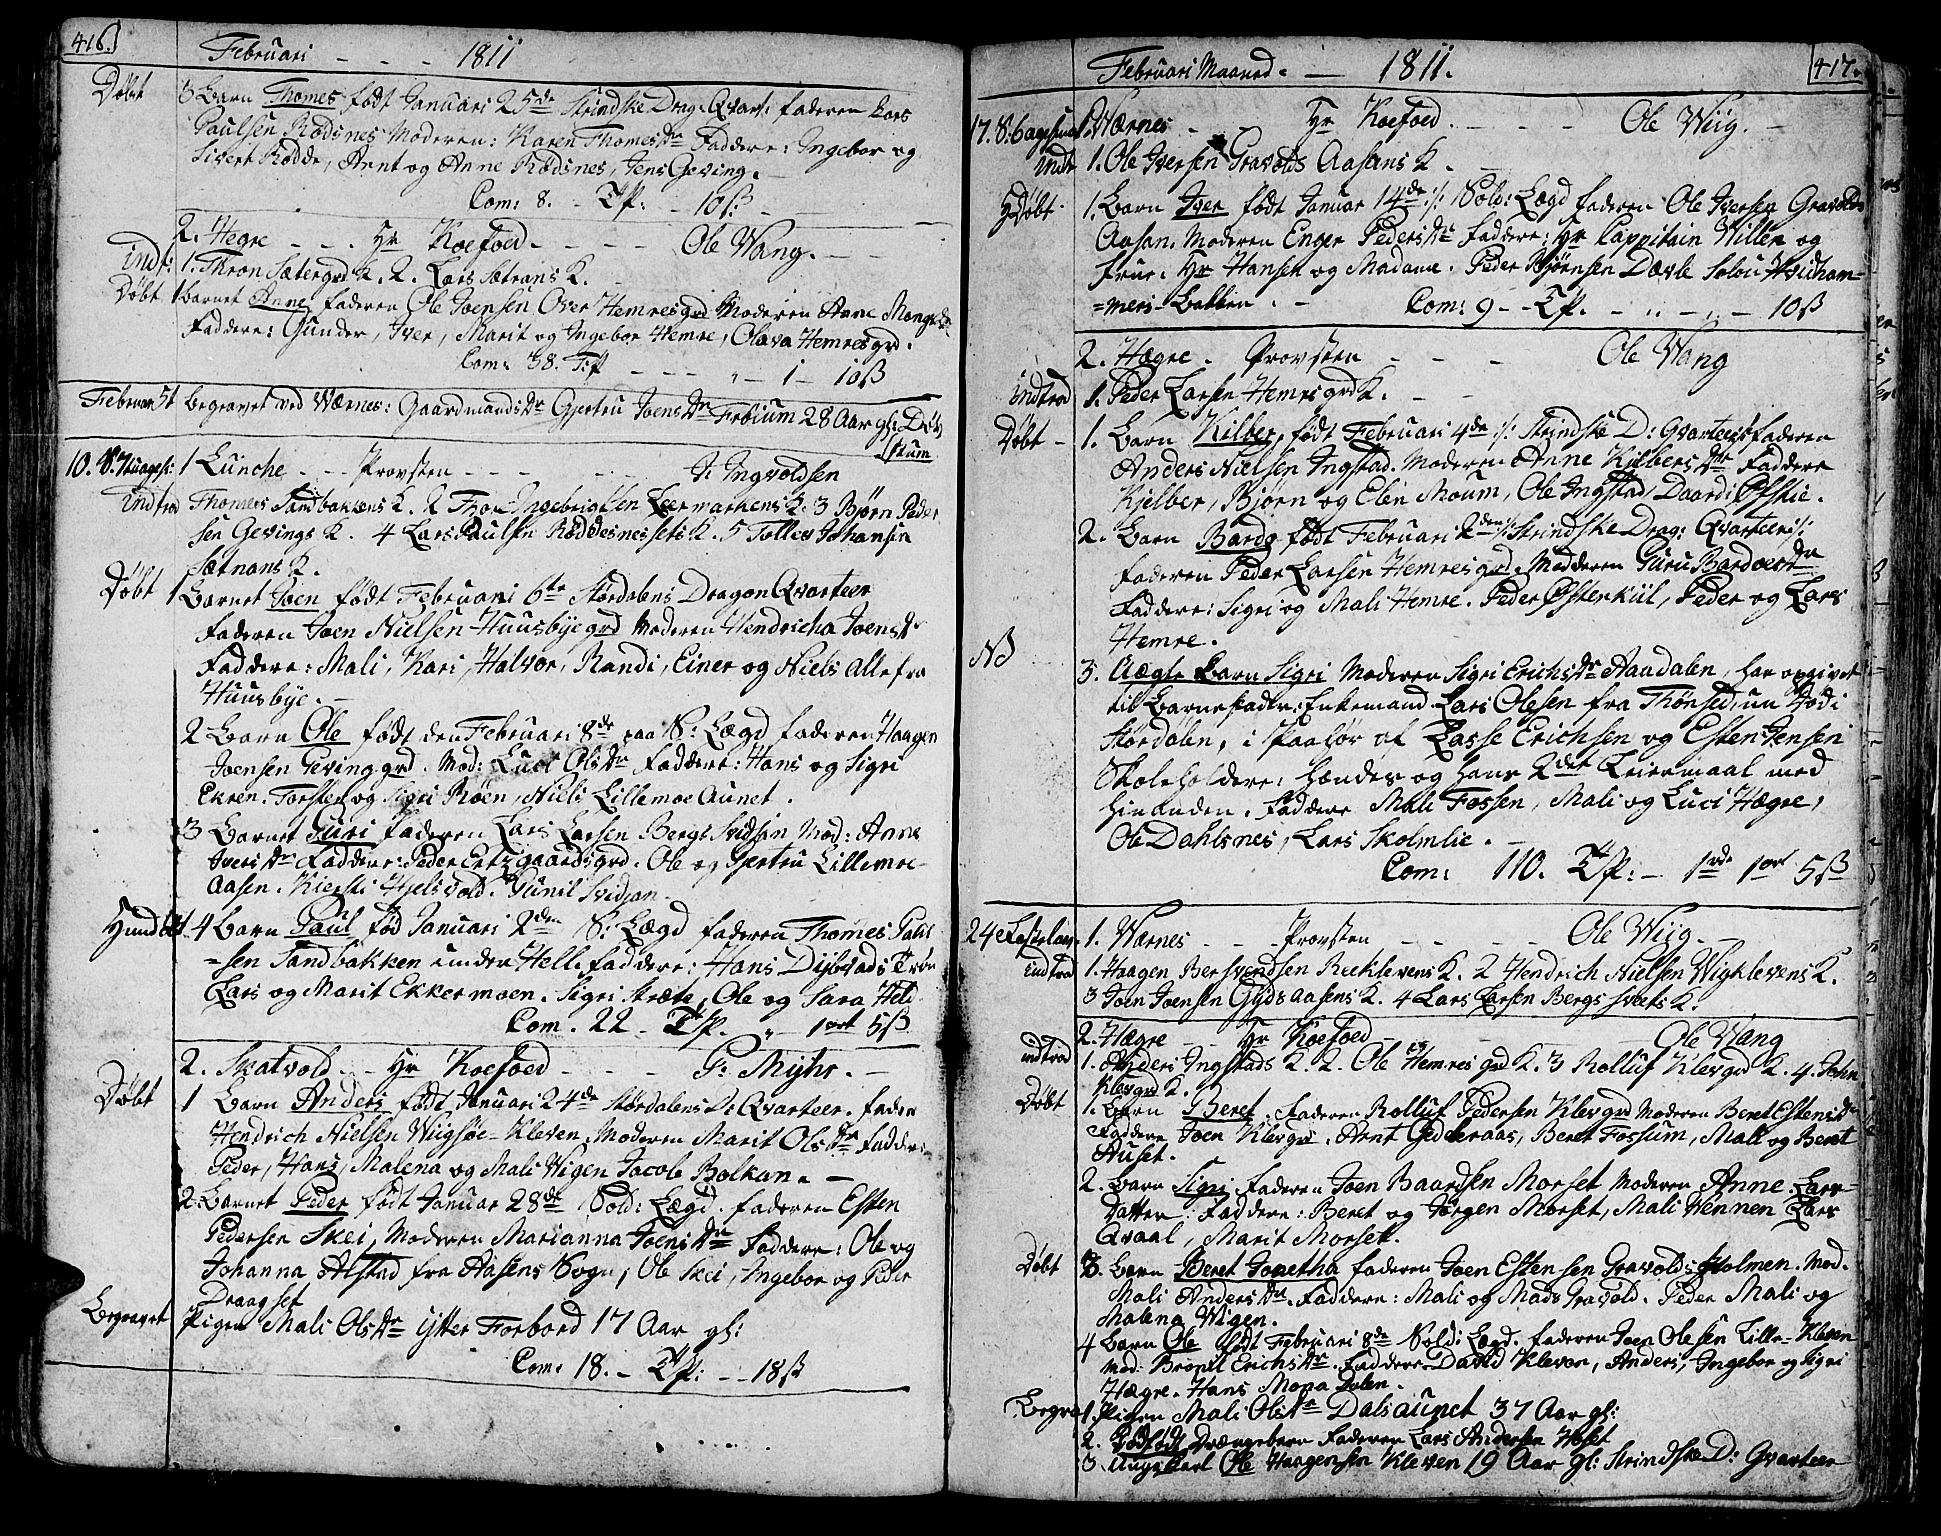 416.
Februari - - - 1811
Døbt 3 Barn Thomes født Januari 25de Strindske Drag: Qvart: faderen Lars
Paulsen Rødsnes Moderen: Karen Thomesdr Faddere: Ingebor og
Sivert Rødde, Arnt og Anne Rødsnes, Jens Geving.
Com: 8. - Tp: - 10ß
2. Hegre - - - Hr Koefoed - - - - Ole Wang. - -
indt: 1. Thron Sætergrd K. 2. Lars Sætrans K.
Døbt 1 Barnet Anne faderen Ole Joensen Over Hemresgrd Moderen Anne Mongsdr
Faddere: Gunder, Iver, Marit og Ingebor Hemre, Olava Hemresgrd.
Com: 38. Tp - - - " - 1 - 10ß
Februar 5t begravet ved Wærnes: Gaardmandsdr Gjertru Joensdr Frøium 28 Aar gl: Døv
stum
10. S. Stuages: 1 Lunche - - Provsten - - - - J: Ingvoldsen
Indtrod Thomes Sandbakkens K. 2 Thor Ingebrigtsen Leermarkens K. 3 Bjørn Peder
sen Gevings K. 4 Lars Paulsen Røddesnessets K. 5 Tollev Johansen
Sætnans K.
Døbt 1 Barnet Joen født Februari 6te Størdalens Dragon Qvarteer
faderen Joen Nielsen Huusbyegrd Moderen Hendricha Joensdr
Faddere: Mali, Kari, Halvor, Randi, Einer og Niels alle fra
Huusbye. -
2 Barn Ole født den Februari 8de paa S: Lægd faderen Haagen
Joensen Gevinggrd. Mod: Luci Olsdr Faddere: Hans og Sigri
Ekren. Torsten og Sigri Røen, Niels Lillemoe Aunet.
3 Barnet Guri faderen Lars Larsen Bergs Svedsin Mod: Anne
Iversdr Faddere: Peder Ertzgaardsgrd. Ole og Gjertru Lillemoe
Aasen. Kiersti Hjelsvold. Gunil Svedjan.
Hiemdøbt 4 Barn Paul fød Januari 2den S: Lægd faderen Thomes Paul
=sen Sandbakken under Helle faddere: Hans Dijbvads Trøn
Lars og Marit Ekkermoen. Sigri Stræte, Ole og Sara Hell
Com. 22 - Tp. " 1ort 5ß
2. Skatvold - - Hr Koefoed - - - P: Myhr. -
Døbt 1 Barn Anders født Januari 24de Størdalens D: Qvarteer. fader
Hendrich Nielsen Wiigsøe-Kleven Moderen Marit Olsdr Fadder:
Peder, Hans, Malena og Mali Wigen Jacob Bolkan. -
2 Barnet Peder født Januar 28de Sold: Lægd. faderen Esten
Pedersen Skei, Moderen Marianna Joensdr Faddere: Ole og
Johanna Alstad fra Aasens Sogn, Ole Skei, Ingebor og Peder
Draagset
Begravet Pigen Mali Olsdr Ytter Forbord 17 Aar gl:
Com: 18. - Tp: - - 18ß
Februari Maaned. - 1811. 417.
17. S. Sagesima 1. Wærnes - - Hr Koefoed. - - - Ole Wiig. -
Indt 1. Ole Iversen Gravolds Aasens K. -
HDøbt. 1. Barn Iver født Januar 14de :/: Sold: Lægd faderen Ole Iversen Gravolds
Aasan. Moderen Enger Pedersdr Faddere: Hr Cappitain Willen og
Frue. Hr Hansen og Madame. Peder Bjørnsen Dævle Solou Hvidham=
=mers Bakken. - Com: 9 - - Tp. - " - " - 10ß
2. Hægre. Provsten - - - Ole Wang
indtrod 1. Peder Larsen Hemresgrd K.
Døbt - 1. Barn Kilber født Februari 4de :/: Strindske D: Qvarteers faderen
Anders Nielsen Ingstad. Moderen Anne Kjelbersdr Faddere
Kjelber, Bjørn og Elen Moum, Ole Ingstad, Daardi Øfstie.
2. Barn Bardo født Februari 2den :/: Strindske Drag: Qvarteers:
Faderen Peder Larsen Hemresgrd. Modderen Guru Bardoesdr
Faddere: Sigri og Mali Hemre. Peder Østenkiil, Peder og Lars
Hemre.
NB 3. Uægte Barn Sigri Moderen Sigri Erichsdr Aandalen, har opgivet
til Barnefader: Enkemand Lars Olesen fra Thønsed, nu Hødi
Størdalen, i Paahør af Lasse Erichsen og Esten Jensen
Skoleholdere: hændes og hans 2det Leiermaal med
hinanden. Faddere Mali Fossen, Mali og Luci Hægre,
Ole Dahlsnes, Lars Skolmlie. -
Com: 110. Tp: - 1rd 1ort 5ß
24e Fastelavn. 1. Wærnes - - Provsten - - - Ole Wiig. -
indtrod 1. Haagen Bersvendsen Rieklevens K. 2 Hendrich Nielsen Wigklevens K.
3 Joen Joensen Gydsaasens K. 4 Lars Larsen Bergs Svæets K.
2. Hægre - - Hr Koefoed - - - Ole Wang
indtrod 1. Anders Ingstads K. 2. Ole Hemresgrd K. 3 Rolluf Klevgrd K. 4. John
Klevgrd K.
Døbt 1. Barn Beret. Faderen Rolluf Pedersen Klevgrd Moderen Beret Estensdr
Faddere Joen Klevgrd. Arnt Gedderaas, Beret Fossum, Mali og Beret
Auset.
2. Barn Sigri Faderen Joen Baardsen Morset Moderen Anne Lars=
Datter. Faddere: Beret og Jørgen Morset, Mali Wennen Lars
Qvaal, Marit Morset.
Døbt 3. Barn Beret Gonetha faderen Joen Estensen Gravolds Holmen. Mod.
Mali Andersdr. Faddere: Mali og Mads Gravold. Peder Mali og
Malena Wigen.
4 Barn Ole født Februari 8de Sold: Lægd. faderen Joen Olesen Lille-Kleven
Mod: Brønil Erichsdr. Faddere David Kleven, Anders, Ingebor og Sigri
Hægre. Hans Mona Dalen.
Begra 1. Pigen Mali Olsdr Dalsaunet 37 Aar gl:
2. Dødfødt Drængebarn Faderen Lars Andersen Hofset
3 Ungekarl Ole Haagensen Kleven 19 Aar gl: Strindske D: Qvarteer